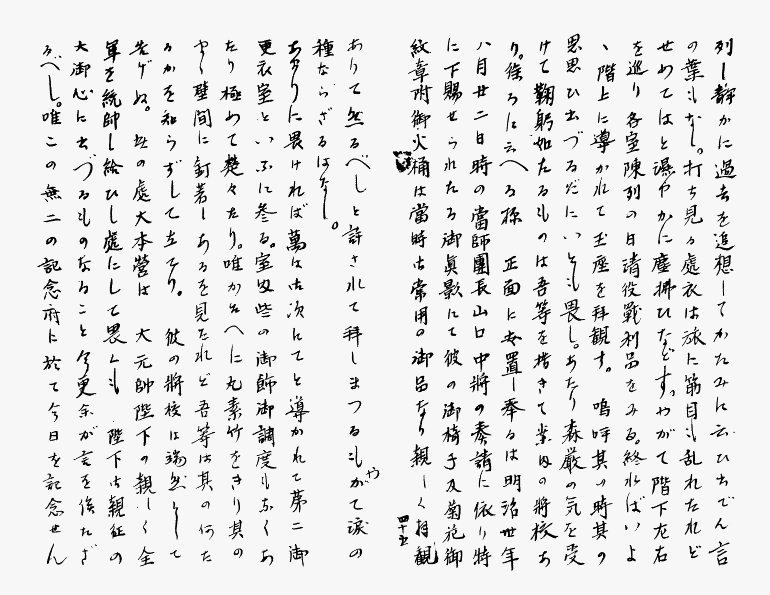 列し静かに過去を追想してかたみに云ひ出でん言
の葉もなし。打ち見る處衣は旅に筋目も乱れたれど
せめてはと濕やかに塵拂ひなどす。やがて階下左右
を巡り各室陳列の日清役戰利品をみる。終ればいよ
ゝ階上に導かれて玉座を拜観す。嗚呼其の時其の
思思ひ出づるだにいとも畏し。あたり森厳の気を受
けて鞠躬如たるものは吾等を措きて案内の將校ち
り。徐ろに云へる様 正面に安置し奉るは明治廿年
八月廿二日時の當師團長山口中將の奏請に依り特
に下賜せられたる御眞影にて彼の御椅子及菊花御
紋章附御火桶は當時御常用の御品なり親しく拜観
四十五
ありて然るべしと許されて拜しまつるもがて涙の
や
種ならざるはなし。
あまりに畏ければ萬は御次にてと導かれて第二御
更衣室といふに参る。室内些の御飾御調度もなくあ
たり極めて楚々たり。唯かなへに丸素竹をきり其の
やゝ壁間に釘着しあるを見たれど吾等は其の何た
るかを知らずして立てり。 彼の將校は端然として
告げぬ。此の處大本營は 大元帥陛下の親しく全
軍を統帥し給ひし處にして畏くも 陛下御親征の
大御心に出づるものなること今更余が言を俟たざ
るべし。唯この無二の記念府に於て今日を記念せん